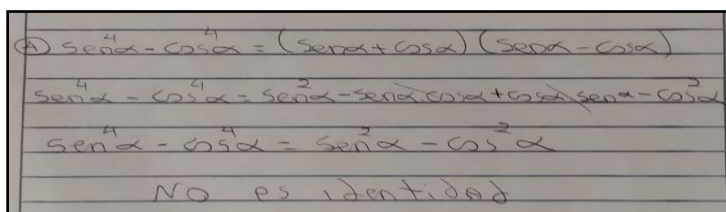 A) sen⁴α - cos⁴α = (senα + cosα) (senα - cosα)
sen⁴α - cos⁴α = sen²α - senα.cosα + cosα.senα - cos²α
sen⁴α - cos⁴α = sen²α - cos²α
No es identidad